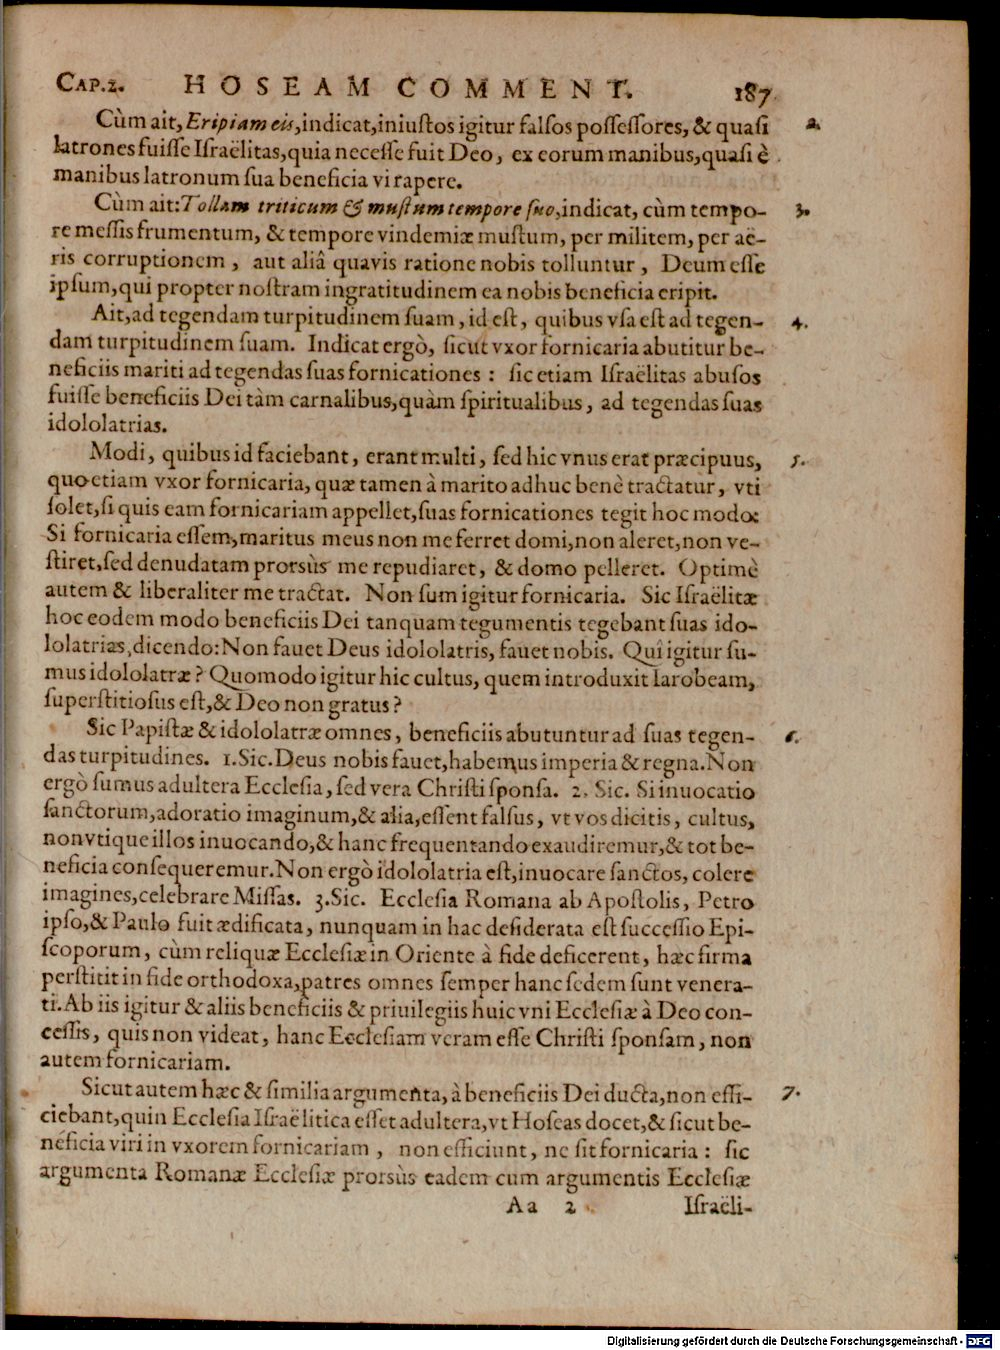 CAP.2. HOSEAM COMMENT. 187
Cùm ait, Eripiam eis, indicat, iniuſtos igitur falſos poſſeſſores, & quaſi 2.
latrones fuiſſe Iſraëlitas, quia neceſſe fuit Deo, ex eorum manibus, quaſi è
manibus latronum ſua beneficia vi rapere.
Cùm ait: Tollam triticum & muſtum tempore ſuo, indicat, cùm tempo- 3.
re meſſis frumentum, & tempore vindemiæ muſtum, per militem, per aë-
ris corruptionem, aut aliâ quavis ratione nobis tolluntur, Deum eſſe
ipſum, qui propter noſtram ingratitudinem ea nobis beneficia eripit.
Ait, ad tegendam turpitudinem ſuam, id eſt, quibus vſa eſt ad tegen- 4.
dam turpitudinem ſuam. Indicat ergò, ſicut vxor fornicaria abutitur be-
neficiis mariti ad tegendas ſuas fornicationes: ſic etiam Iſraëlitas abuſos
fuiſſe beneficiis Dei tàm carnalibus, quàm ſpiritualibus, ad tegendas ſuas
idololatrias.
Modi, quibus id faciebant, erant multi, ſed hic vnus erat præcipuus, 5.
quo etiam vxor fornicaria, quæ tamen à marito adhuc benè tractatur, vti
ſolet, ſi quis eam fornicariam appellet, ſuas fornicationes tegit hoc modo:
Si fornicaria eſſem, maritus meus non me ferret domi, non aleret, non ve-
ſtiret, ſed denudatam prorsùs me repudiaret, & domo pelleret. Optimè
autem & liberaliter me tractat. Non ſum igitur fornicaria. Sic Iſraëlitæ
hoc eodem modo beneficiis Dei tanquam tegumentis tegebant ſuas ido-
lolatrias, dicendo: Non fauet Deus idololatris, fauet nobis. Quî igitur ſu-
mus idololatræ? Quomodo igitur hic cultus, quem introduxit Iarobeam,
ſuperſtitioſus eſt, & Deo non gratus?
Sic Papiſtæ & idololatræ omnes, beneficiis abutuntur ad ſuas tegen- 6.
das turpitudines. 1. Sic. Deus nobis fauet, habemus imperia & regna. Non
ergò ſumus adultera Eccleſia, ſed vera Chriſti ſponſa. 2. Sic. Si inuocatio
ſanctorum, adoratio imaginum, & alia, eſſent falſus, vt vos dicitis, cultus,
non vtique illos inuocando, & hanc frequentando exaudiremur, & tot be-
neficia conſequeremur. Non ergò idololatria eſt, inuocare ſanctos, colere
imagines, celebrare Miſſas. 3. Sic. Eccleſia Romana ab Apoſtolis, Petro
ipſo, & Paulo fuit ædificata, nunquam in hac deſiderata eſt ſucceſſio Epi-
ſcoporum, cùm reliquæ Eccleſiæ in Oriente à fide deficerent, hæc firma
perſtitit in fide orthodoxa, patres omnes ſemper hanc ſedem ſunt venera-
ti. Ab iis igitur & aliis beneficiis & priuilegiis huic vni Eccleſiæ à Deo con-
ceſſis, quis non videat, hanc Eccleſiam veram eſſe Chriſti ſponſam, non
autem fornicariam.
Sicut autem hæc & ſimilia argumenta, à beneficiis Dei ducta, non effi- 7.
ciebant, quin Eccleſia Iſraëlitica eſſet adultera, vt Hoſeas docet, & ſicut be-
neficia viri in vxorem fornicariam, non efficiunt, ne ſit fornicaria: ſic
argumenta Romanæ Eccleſiæ prorsùs eadem cum argumentis Eccleſiæ
Aa 2 Iſraëli-
Digitalisierung gefördert durch die Deutsche Forschungsgemeinschaft - DFG